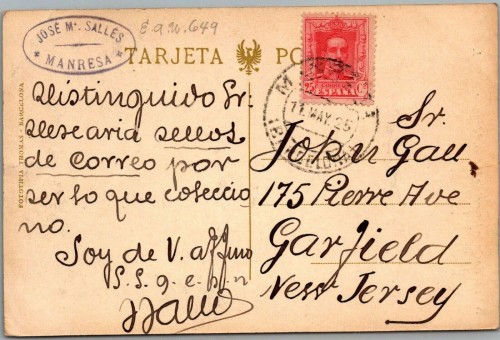 JOSÉ Mª. SALLÉS
* MANRESA *
E a W. 649
TARJETA PO
25 CTS
ESPAÑA
11 MAY. 25
BARCELONA
FOTOTIPIA THOMAS - BARCELONA
Distinguido Sr.
desearia sellos
de correo por
ser lo que coleccio
no.
Soy de V. affmo
S. S. q. e. s. m
Sr.
John Gall
175 Pierre Ave
Garfield
New Jersey